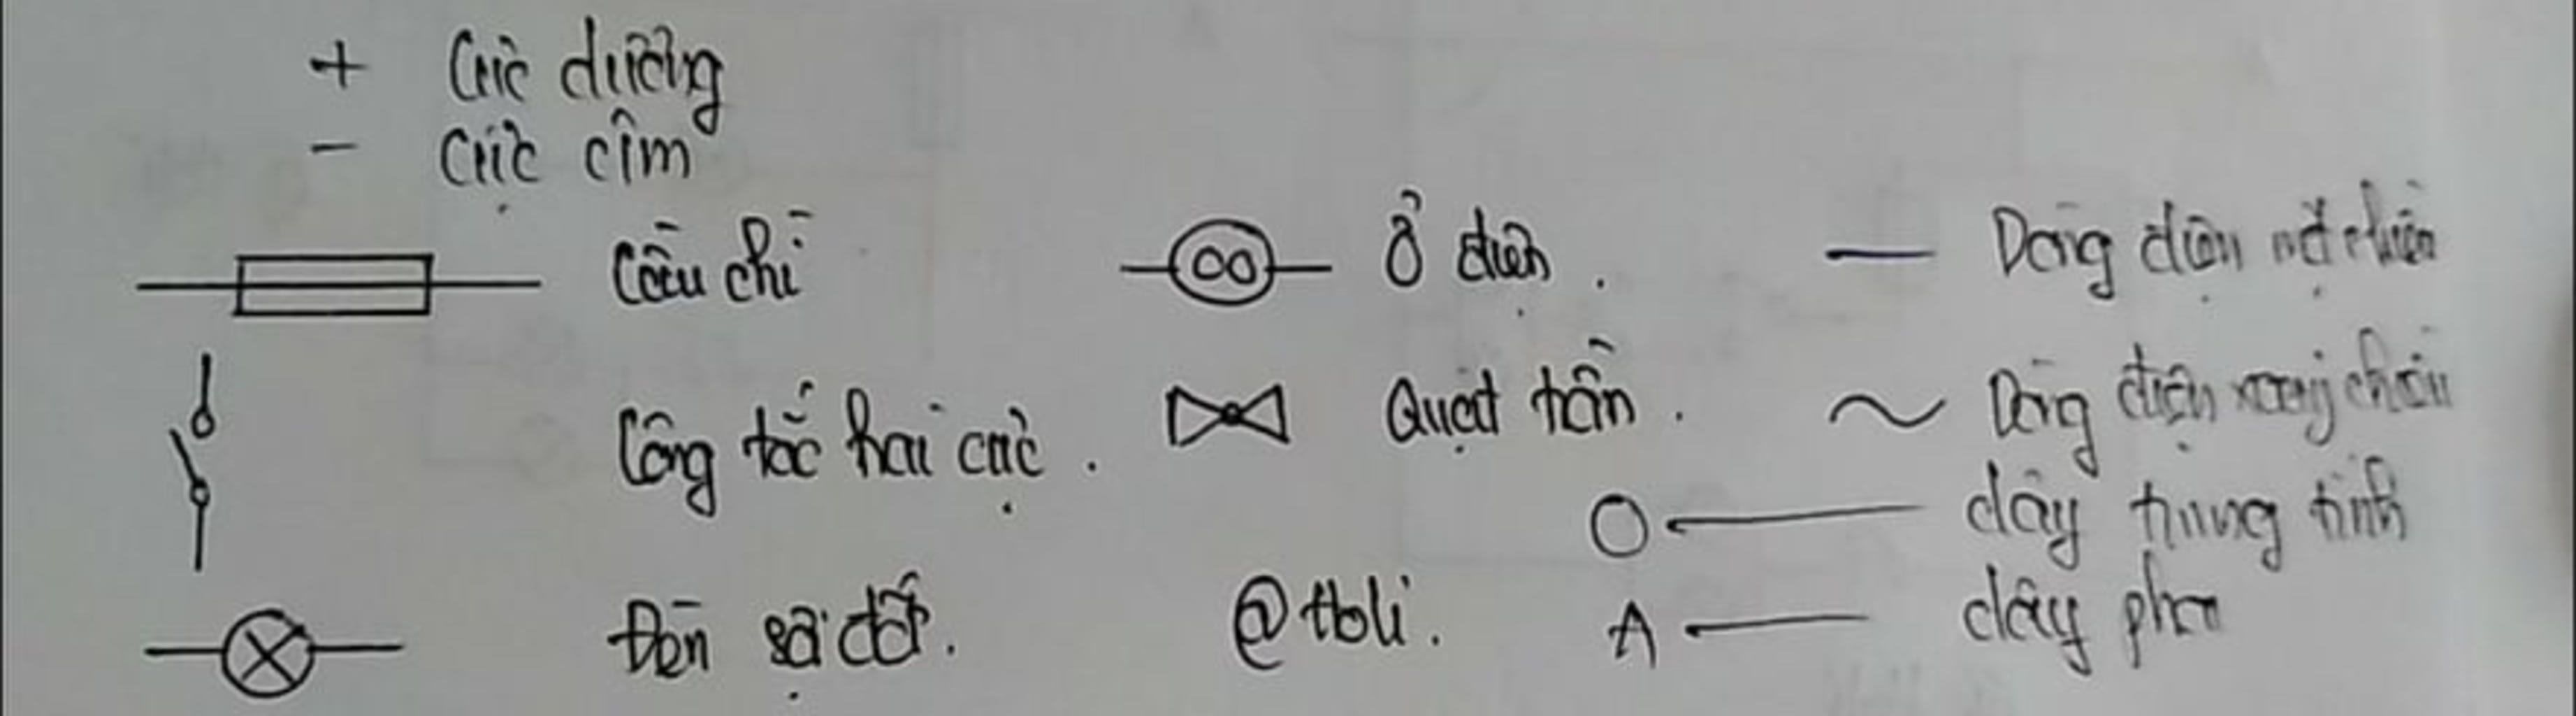 + Cực dương
- Cực âm
Cầu chì
Ổ điện.
Dòng điện một chiều
Công tắc hai cực.
Quạt trần.
Dòng điện xoay chiều
O dây trung tính
Đèn sợi đốt.
@ttoli.
A dây pha